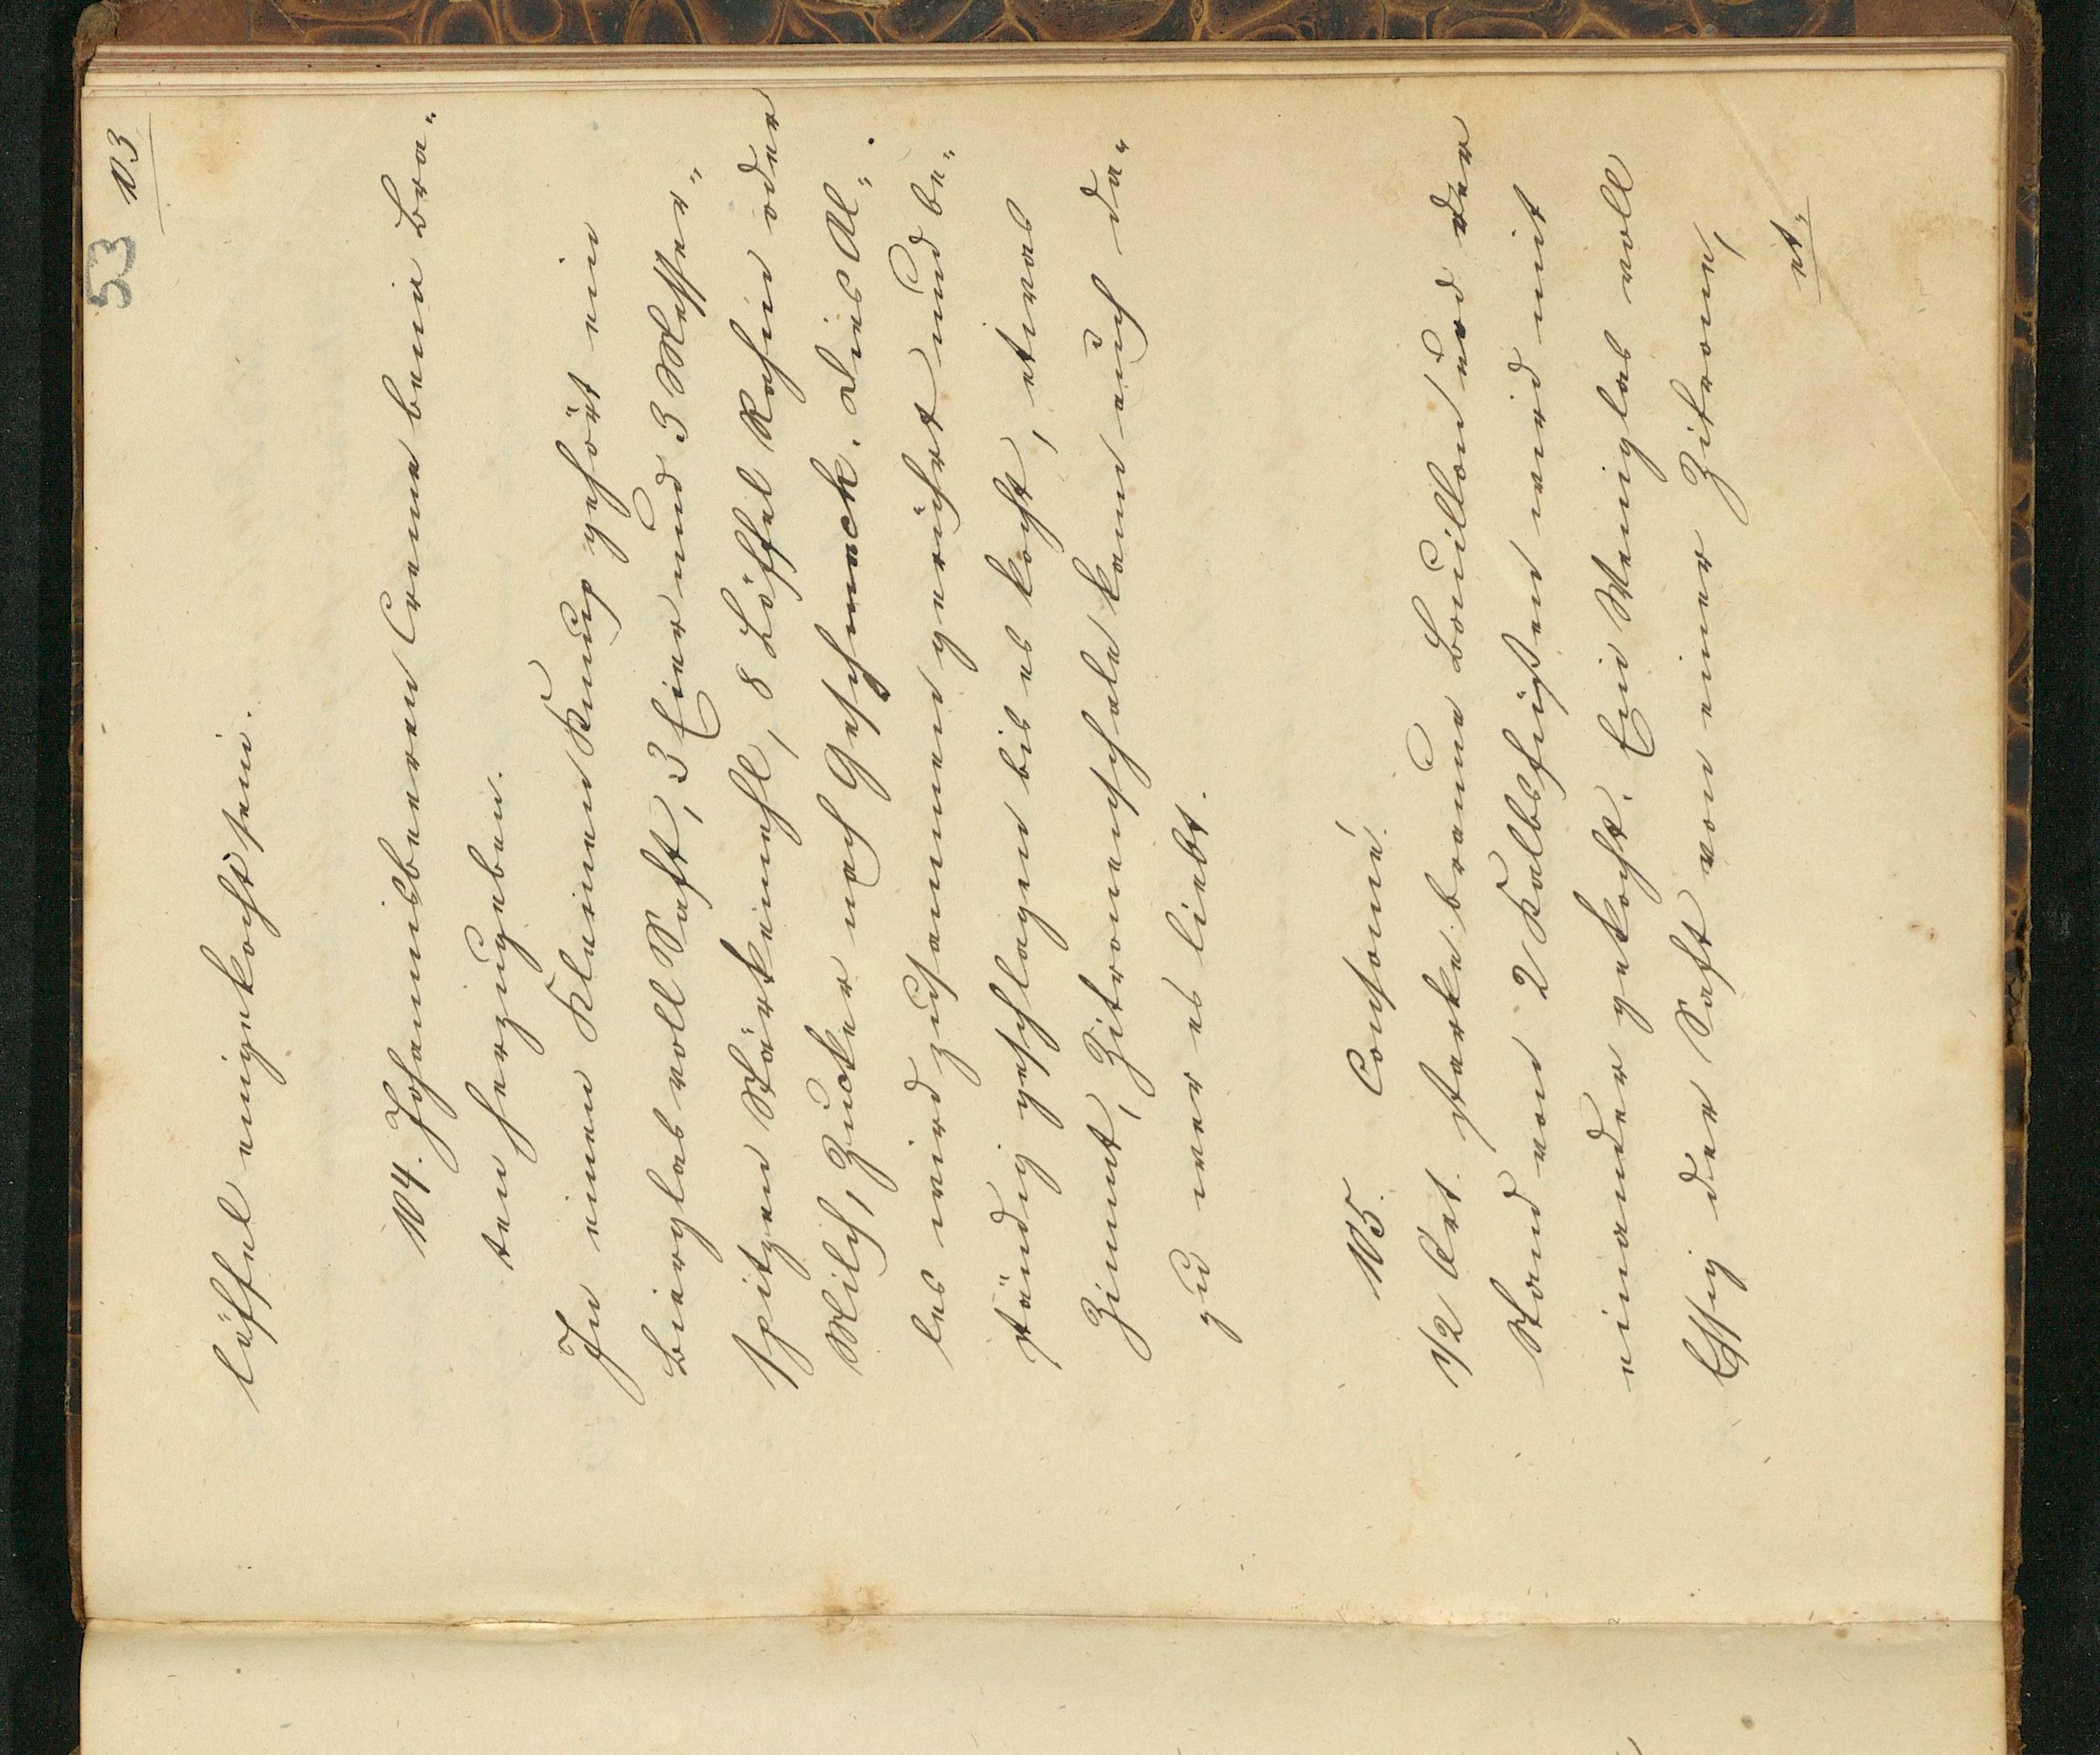 103
53
löffel eingekocht sein.
104. Johannisbeeren Creme beim Bra-
ten herzugeben.
In einen kleinen Knup gehört ein
Bierglas voll Saft, 3 Eier und 3 Messer-
spitzen Stärkemehl, 8 Löffel Rahm oder
Milch, Zucker nach Geschmack. Dies Al-
les wird zusammen gerührt und be-
ständig geschlagen bis es kocht, etwas
Zimmt, Zitronenschale kann auch da-
zu wer es liebt.
105. Consomé.
1/2 Ort starke braune Bouillon und der
Stand von 2 Kalbsfüßen wird mit
einander gekocht. Ein Weinglas voll
Essig der Saft von einer Zitrone,
et-